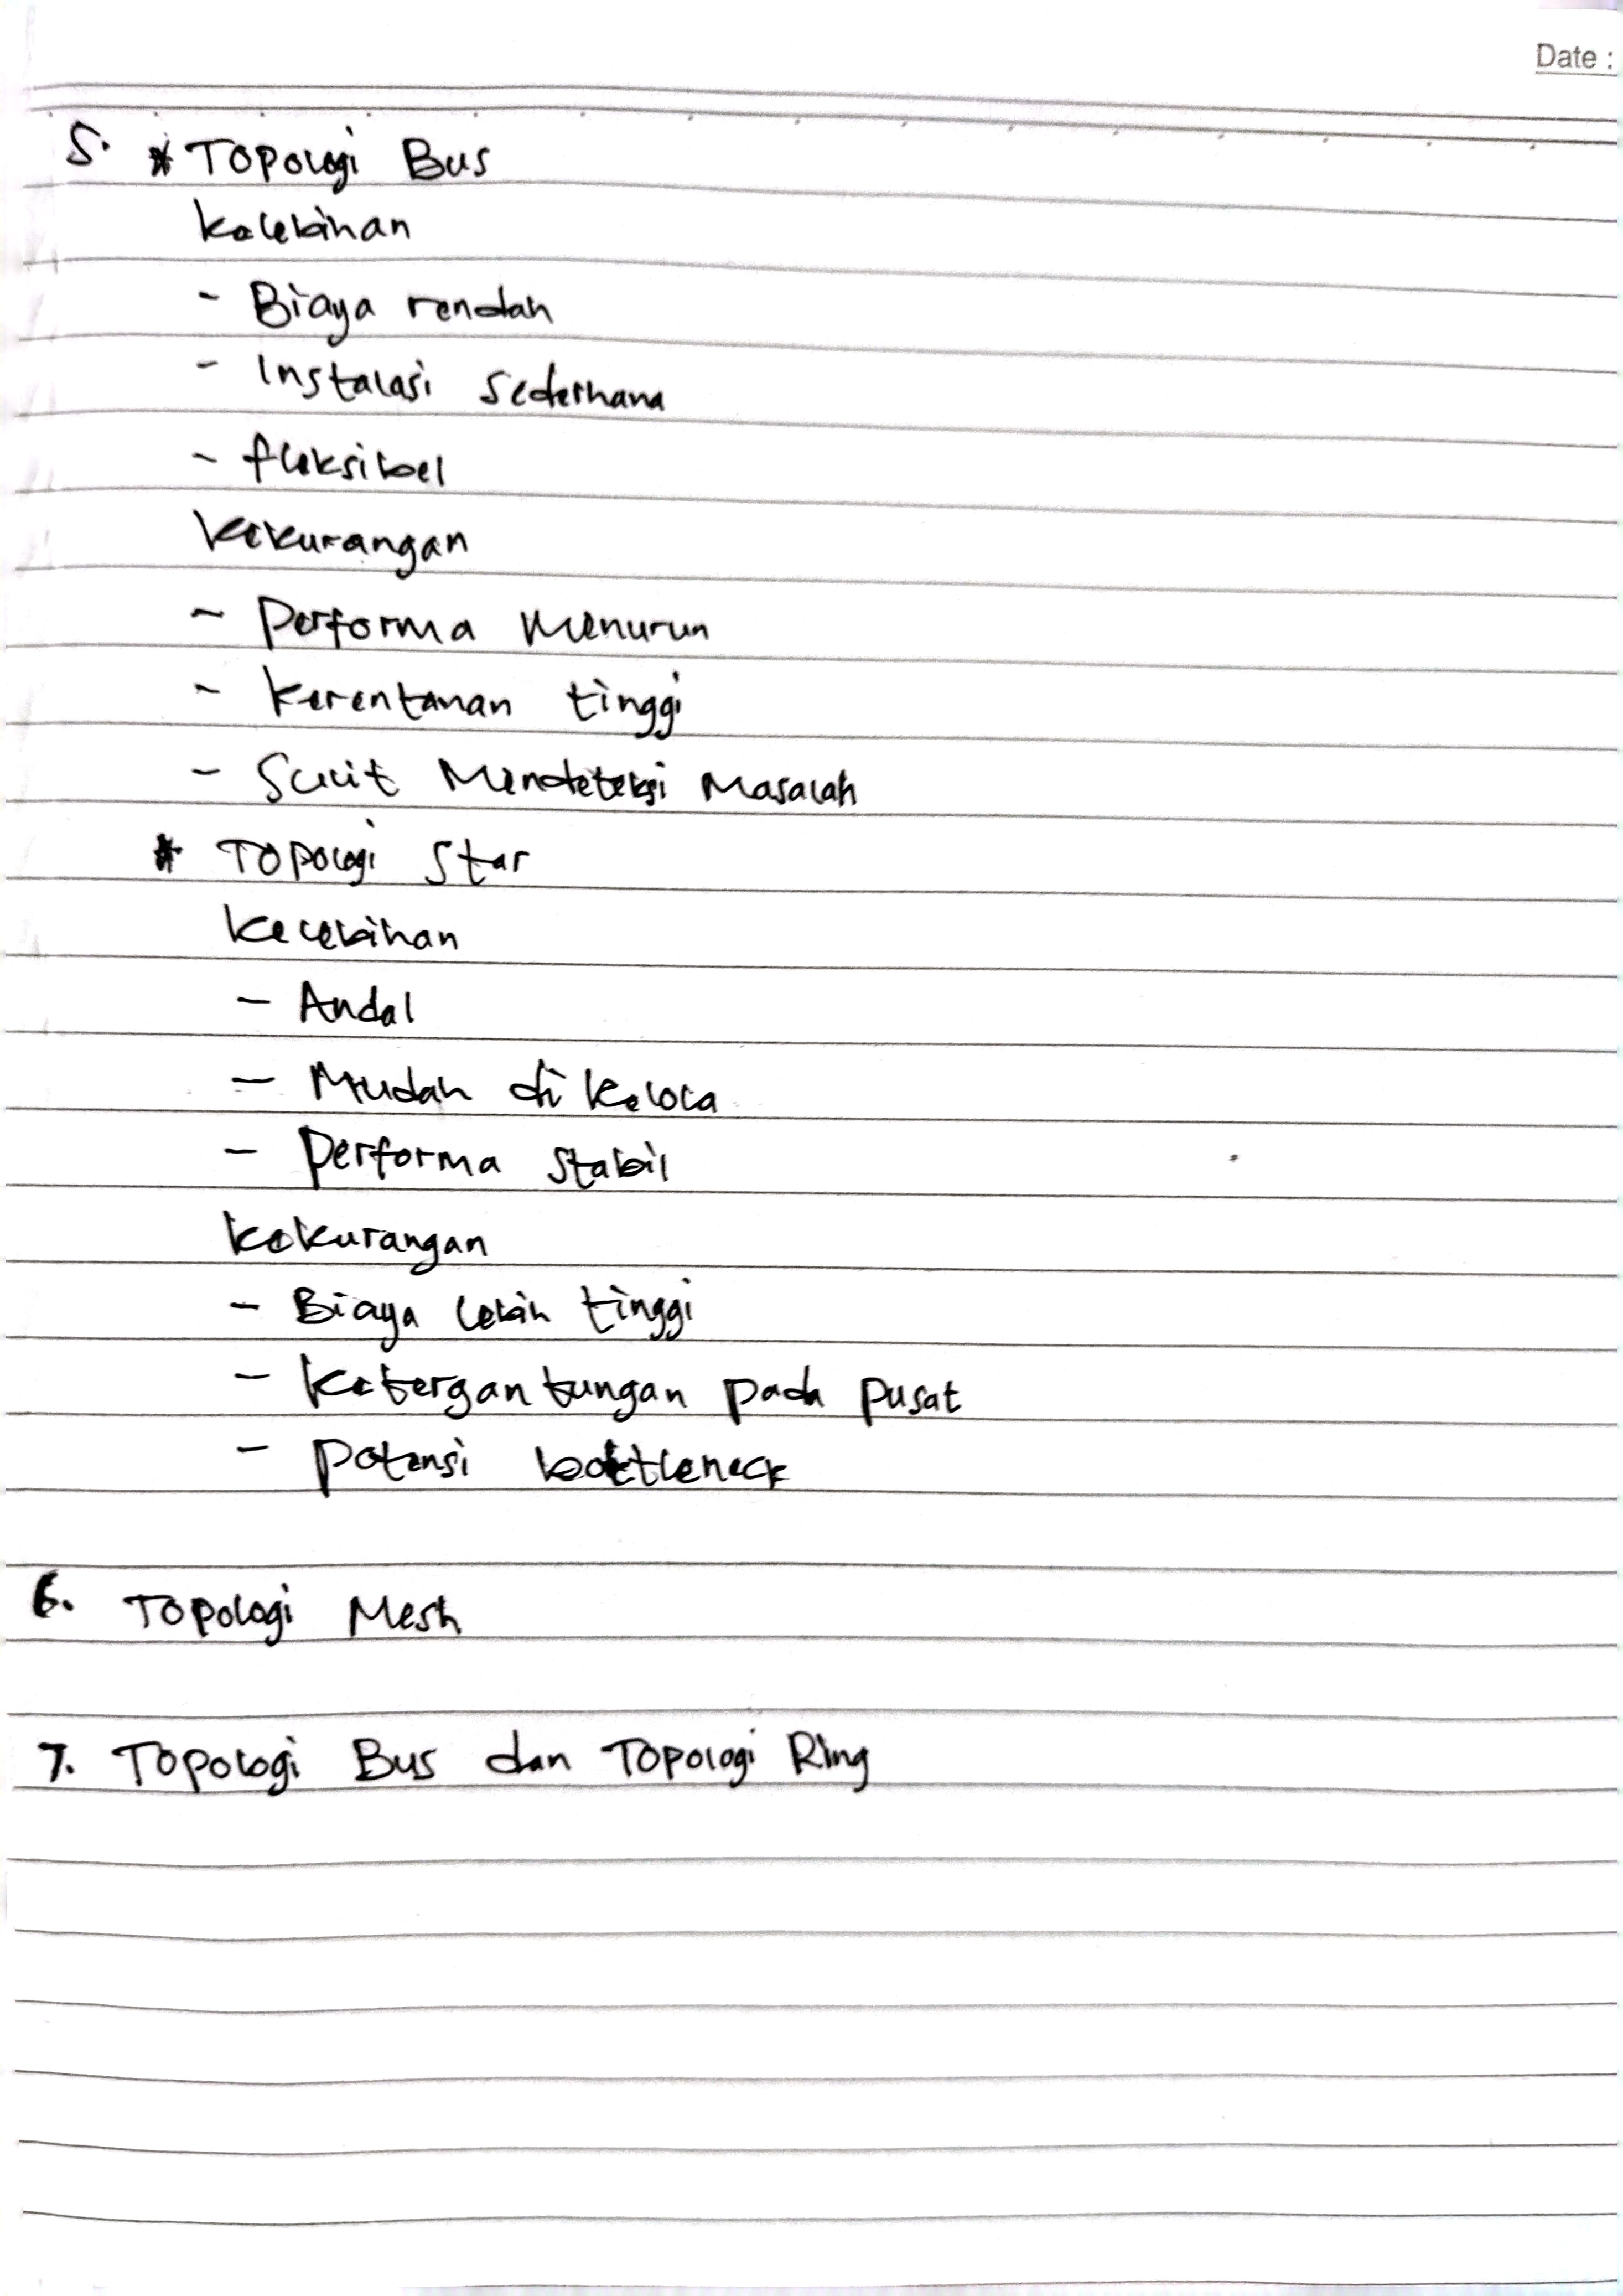 Date :
5. * Topologi Bus
Kelebihan
- Biaya rendah
- Instalasi sederhana
- fleksibel
Kekurangan
- Performa Menurun
- Kerentanan tinggi
- Sulit Mendeteksi Masalah
* Topologi Star
Kelebihan
- Andal
- Mudah di kelola
- Performa Stabil
Kekurangan
- Biaya lebih tinggi
- Ketergantungan pada pusat
- Potensi bottleneck
6. Topologi Mesh
7. Topologi Bus dan Topologi Ring